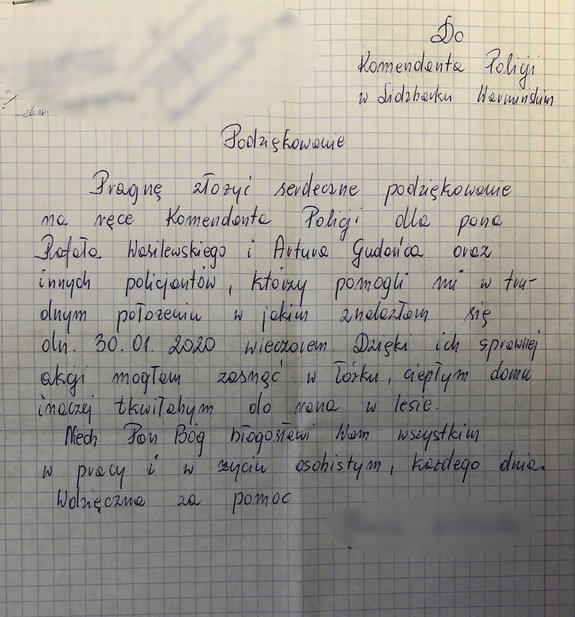 Do
Komendanta Policji
w Lidzbarku Warmińskim
Podziękowanie
Pragnę złożyć serdeczne podziękowanie
na ręce Komendanta Policji dla pana
Rafała Wasilewskiego i Artura Gudańca oraz
innych policjantów, którzy pomogli mi w tru-
dnym położeniu w jakim znalazłam się
dn. 30.01.2020 wieczorem. Dzięki ich sprawnej
akcji mogłam zasnąć w łóżku, ciepłym domu
inaczej tkwiłabym do rana w lesie.
Niech Pan Bóg błogosławi Wam wszystkim
w pracy i w życiu osobistym, każdego dnia.
Wdzięczna za pomoc